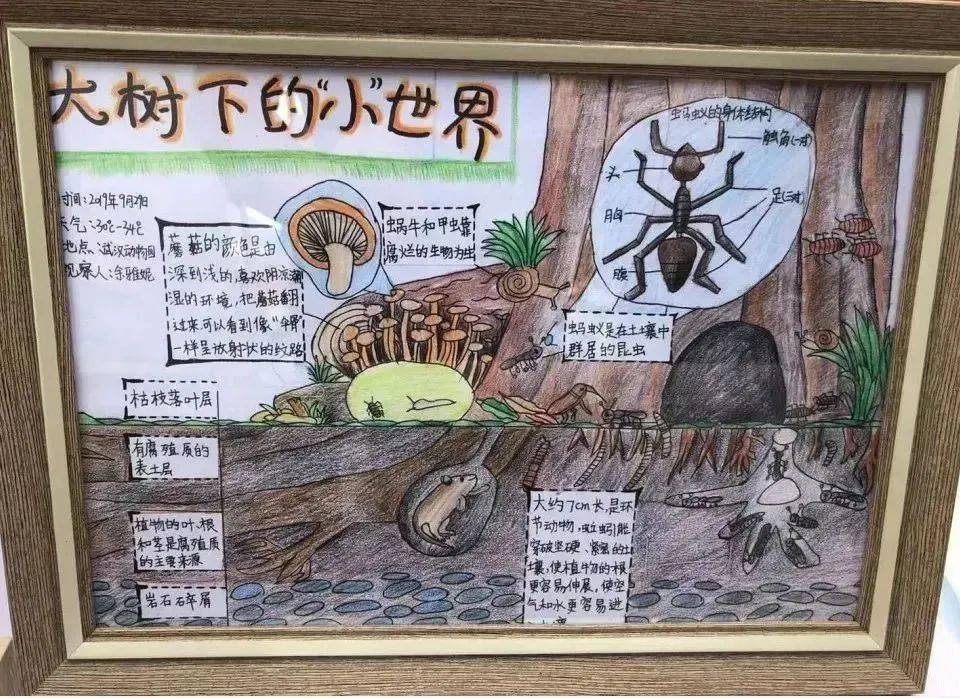 大树下的“小”世界
时间:2019年9月29日
天气:30℃-34℃
地点:武汉动物园
观察人:余雅妮
蘑菇的颜色是由
深到浅的,喜欢阴凉潮
湿的环境,把蘑菇翻
过来可以看到像“伞骨”
一样呈放射状的纹路
蜗牛和甲虫靠
腐烂的生物为生
蚂蚁的身体结构
触角(一对)
头
足(三对)
胸
腹
蚂蚁是在土壤中
群居的昆虫
枯枝落叶层
有腐殖质的
表土层
植物的叶、根
和茎是腐殖质
的主要来源
岩石碎屑
大约7cm长,是环
节动物,蚯蚓能
穿破坚硬、紧密的土
壤,使植物的根
更容易伸展,使空
气和水更容易进